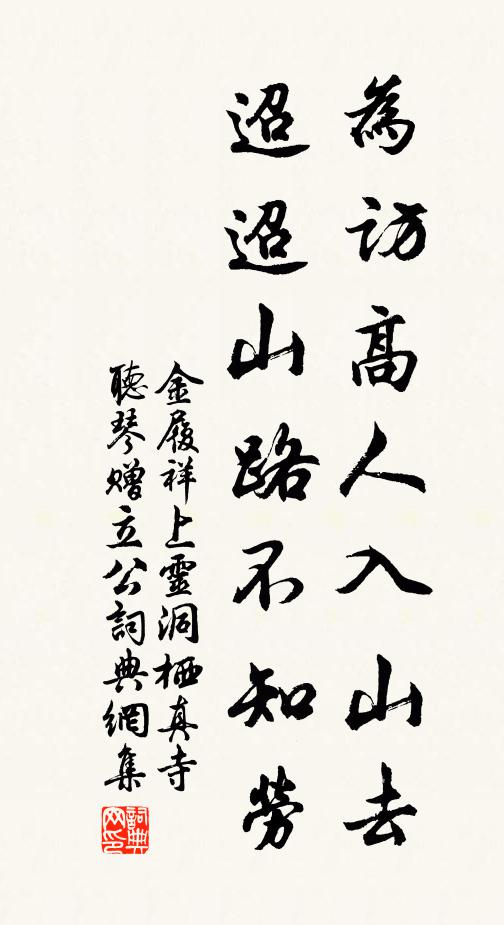 為訪高人入山去
迢迢山路不知勞
金履祥上靈洞栖真寺
聽琴贈立公詞典網集
詞典網印